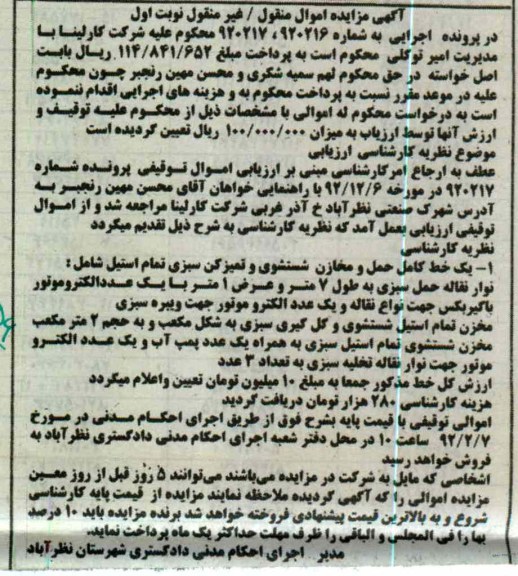 آگهی مزایده اموال منقول / غیر منقول نوبت اول
در پرونده اجرایی به شماره ۹۲۰۲۱۶ ، ۹۲۰۲۱۷ محکوم علیه شرکت کارلینا با
مدیریت امیر توکلی محکوم است به پرداخت مبلغ ۱۱۴/۸۴۱/۶۵۲ ریال بابت
اصل خواسته در حق محکوم لهم سمیه شکری و محسن مهین رنجبر چون محکوم
علیه در موعد مقرر نسبت به پرداخت محکوم به و هزینه های اجرایی اقدام ننموده
است به درخواست محکوم له اموالی با مشخصات ذیل از محکوم علیه توقیف و
ارزش آنها توسط ارزیاب به میزان ۱۰۰/۰۰۰/۰۰۰ ریال تعیین گردیده است
موضوع نظریه کارشناسی ارزیابی
عطف به ارجاع امر کارشناسی مبنی بر ارزیابی اموال توقیفی پرونده شماره
۹۲۰۲۱۷ در مورخه ۹۲/۱۲/۶ با راهنمایی خواهان آقای محسن مهین رنجبر به
آدرس شهرک صنعتی نظرآباد خ آذر غربی شرکت کارلینا مراجعه شد و از اموال
توقیفی ارزیابی بعمل آمد که نظریه کارشناسی به شرح ذیل تقدیم میگردد
نظریه کارشناسی
۱- یک خط کامل حمل و مخازن شستشوی و تمیزکن سبزی تمام استیل شامل :
نوار نقاله حمل سبزی به طول ۷ متر و عرض ۱ متر با یک عددالکتروموتور
باگیربکس جهت نواع نقاله و یک عدد الکترو موتور جهت ویبره سبزی
مخزن تمام استیل شستشوی و گل گیری سبزی به شکل مکعب و به حجم ۲ متر مکعب
مخزن شستشوی تمام استیل سبزی به همراه یک عدد پمپ آب و یک عدد الکترو
موتور جهت نوار نقاله تخلیه سبزی به تعداد ۳ عدد
ارزش کل خط مذکور جمعا به مبلغ ۱۰ میلیون تومان تعیین واعلام میگردد
هزینه کارشناسی ۲۸۰ هزار تومان دریافت گردید
اموالی توقیفی با قیمت پایه بشرح فوق از طریق اجرای احکام مدنی در مورخ
۹۲/۲/۷ ساعت ۱۰ در محل دفتر شعبه اجرای احکام مدنی دادگستری نظرآباد به
فروش خواهد رسید
اشخاصی که مایل به شرکت در مزایده می‌باشند می‌توانند ۵ روز قبل از روز معین
مزایده اموالی را که آگهی گردیده ملاحظه نمایند مزایده از قیمت پایه کارشناسی
شروع و به بالاترین قیمت پیشنهادی فروخته خواهد شد برنده مزایده باید ۱۰ درصد
بها را فی المجلس و الباقی را ظرف مهلت حداکثر یک ماه پرداخت نماید.
مدیر اجرای احکام مدنی دادگستری شهرستان نظرآباد